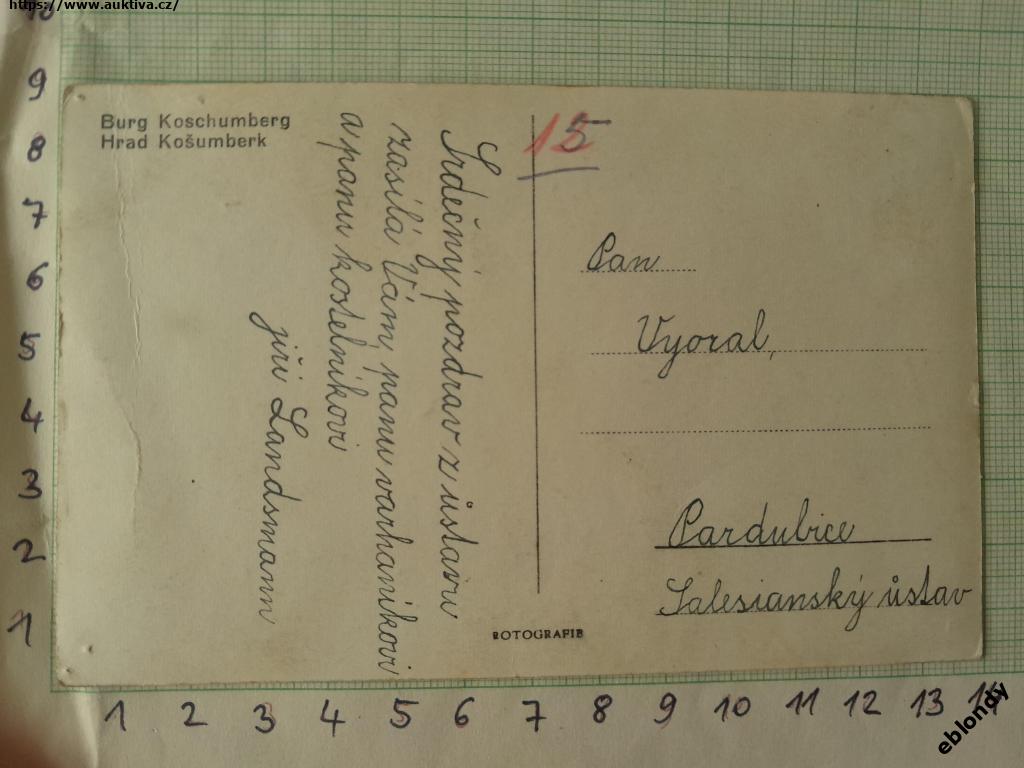 https://www.auktiva.cz/
Burg Koschumberg
Hrad Košumberk
Srdečný pozdrav z ůstavu
zasílá Vám, panu varhaníkovi
a panu kostelníkovi
jiří Landsmann
15
Pan
Vyoral,
Pardubice
Salesianský ůstav
ROTOGRAFIE
10
9
8
7
6
5
4
3
2
1
1 2 3 4 5 6 7 8 9 10 11 12 13 14
eblondy